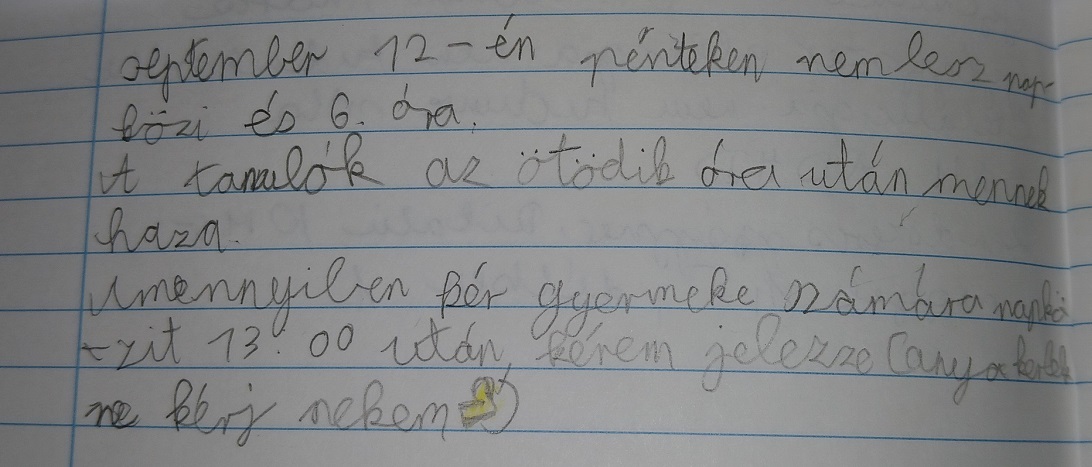 szeptember 12-én pénteken nem lesz nap-
közi és 6. óra.
A tanulók az ötödik óra után mennek
haza.
Amennyiben kér gyermeke számára napkö
-zit 13:00 után, kérem jelezze (anya kérlek
ne kérj nekem )